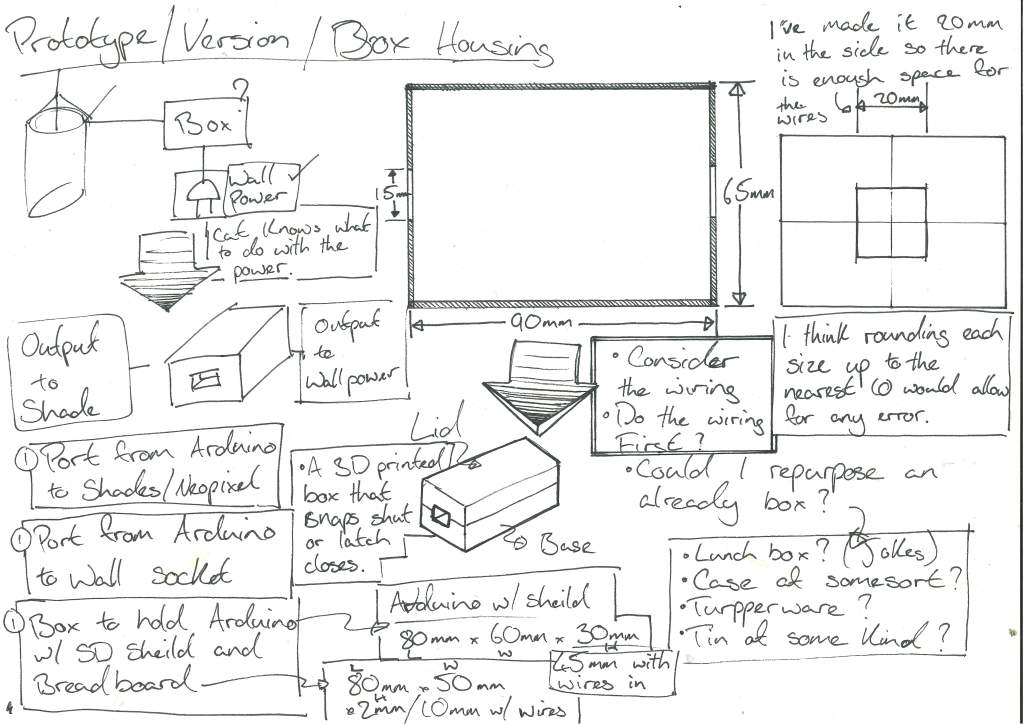 Prototype/Version/Box Housing
?
Box
Wall
Power
Cat Knows what
to do with the
power.
15mm
65mm
90mm
I've made it 20mm
in the side so there
is enough space for
the
wires
20mm
Output
to
Shade
Output
to
Wall power
• Consider
the wiring
• Do the wiring
First?
I think rounding each
size up to the
nearest 10 would allow
for any error.
① Port from Arduino
to Shades/Neopixel
① Port from Arduino
to Wall socket
① Box to hold Arduino
w/ SD sheild and
Breadboard
Lid
• A 3D printed
box that
snaps shut
or latch
closes.
Base
• Could I repurpose an
already box?
• Lunch box? (Jokes)
• Case of somesort?
• Turpperware?
• Tin of some Kind?
Arduino w/ sheild
80mm x 60mm x 30mm
L W H
45mm with
wires in
L W
80mm x 50mm
H
x 2mm/10mm w/ wires